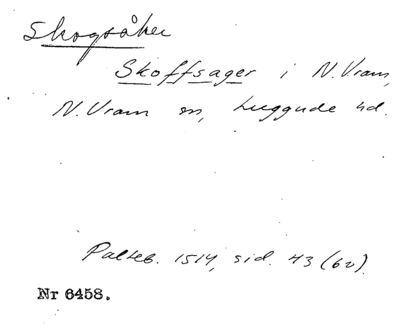 Skogsåker
Skoffsager i N. Vram,
N. Vram sn, Luggude hd.
Palteb. 1514, sid. 43 (60).
Nr 6458.